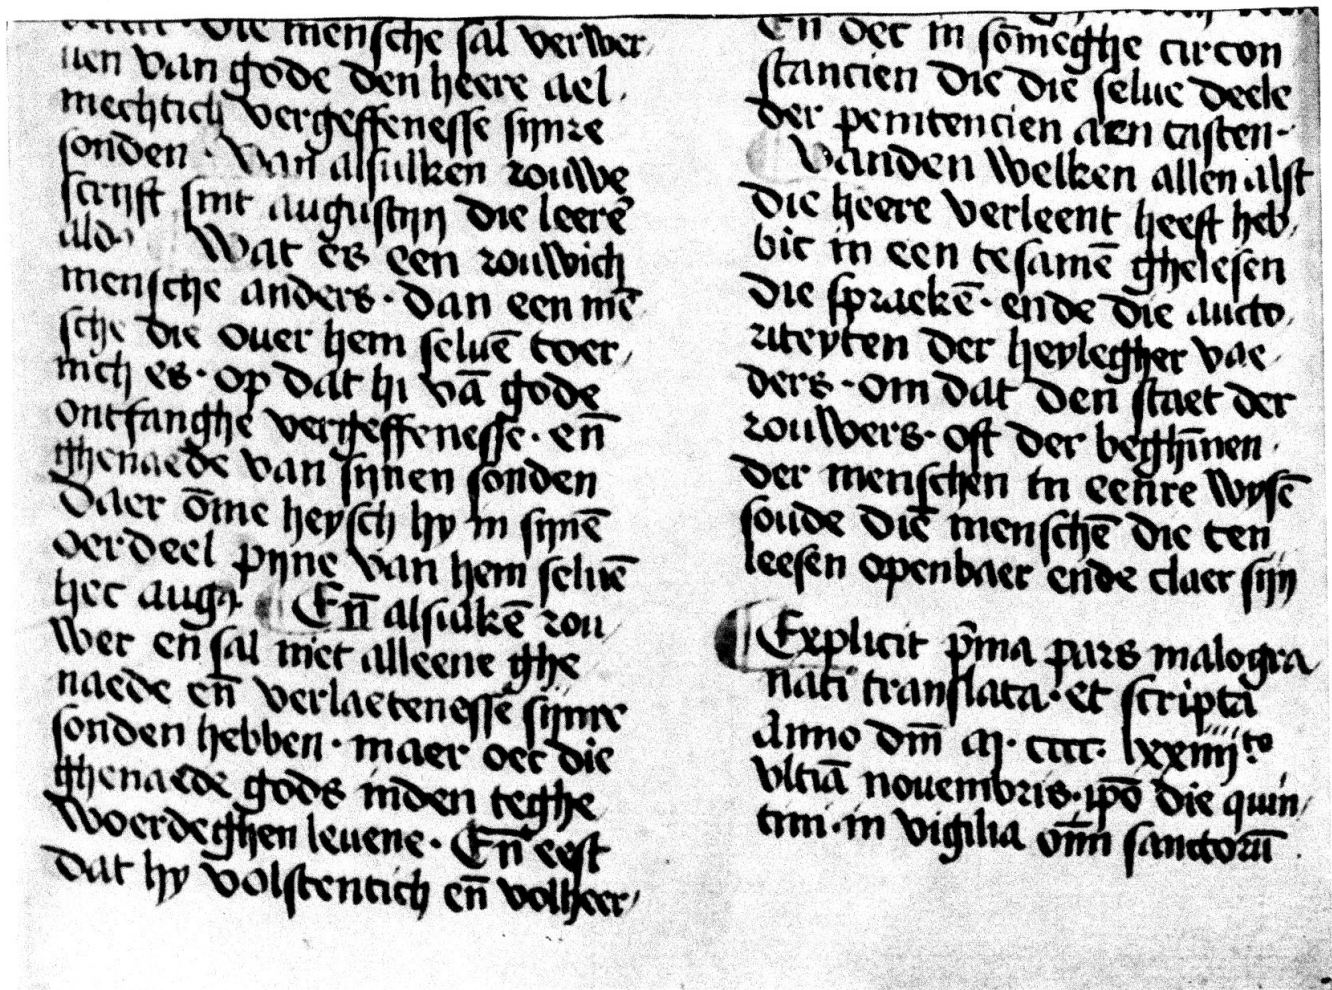 die mensche sal verwer
uen van gode den heere ael
mechtich vergeffenesse sijnre
sonden · Van alsulken rouwe
scrijft sint augustijn die leere
ald·
Wat es een rouwich
mensche anders · dan een mē
sche die ouer hem seluē toer
nich es · op dat hi vā gode
ontfanghe vergeffenesse · en̄
ghenaede van sijnen sonden
daer ōme heysch hy in sijnē
oerdeel pijne van hem seluē
hec aug
En̄ alsulkē rou
wer en sal niet alleene ghe
naede en̄ verlaetenesse sijnre
sonden hebben · maer oec die
ghenaede gods inden teghe
woerdeghen leuene · En̄ eest
dat hy volstentich en̄ volheer
En oec in sōmeghe circon
stancien die die selue deele
der penitencien aen tasten
Vanden welken allen alst
die heere verleent heeft heb
bic in een tesamē ghelesen
die sprackē · ende die aucto
riteyten der heylegher vae
ders · om dat den staet der
rouwers · oft der beghīnen
der menschen in eenre wysē
soude die menschē die ten
leesen openbaer ende claer sijn
Explicit p̄ma pars malogra
nati translata · et scripta
Anno dn̄i m · cccc · lxxiiijto
vltīa nouembris · ip̄o die quin
tini · in vigilia om̄ī sanctorū